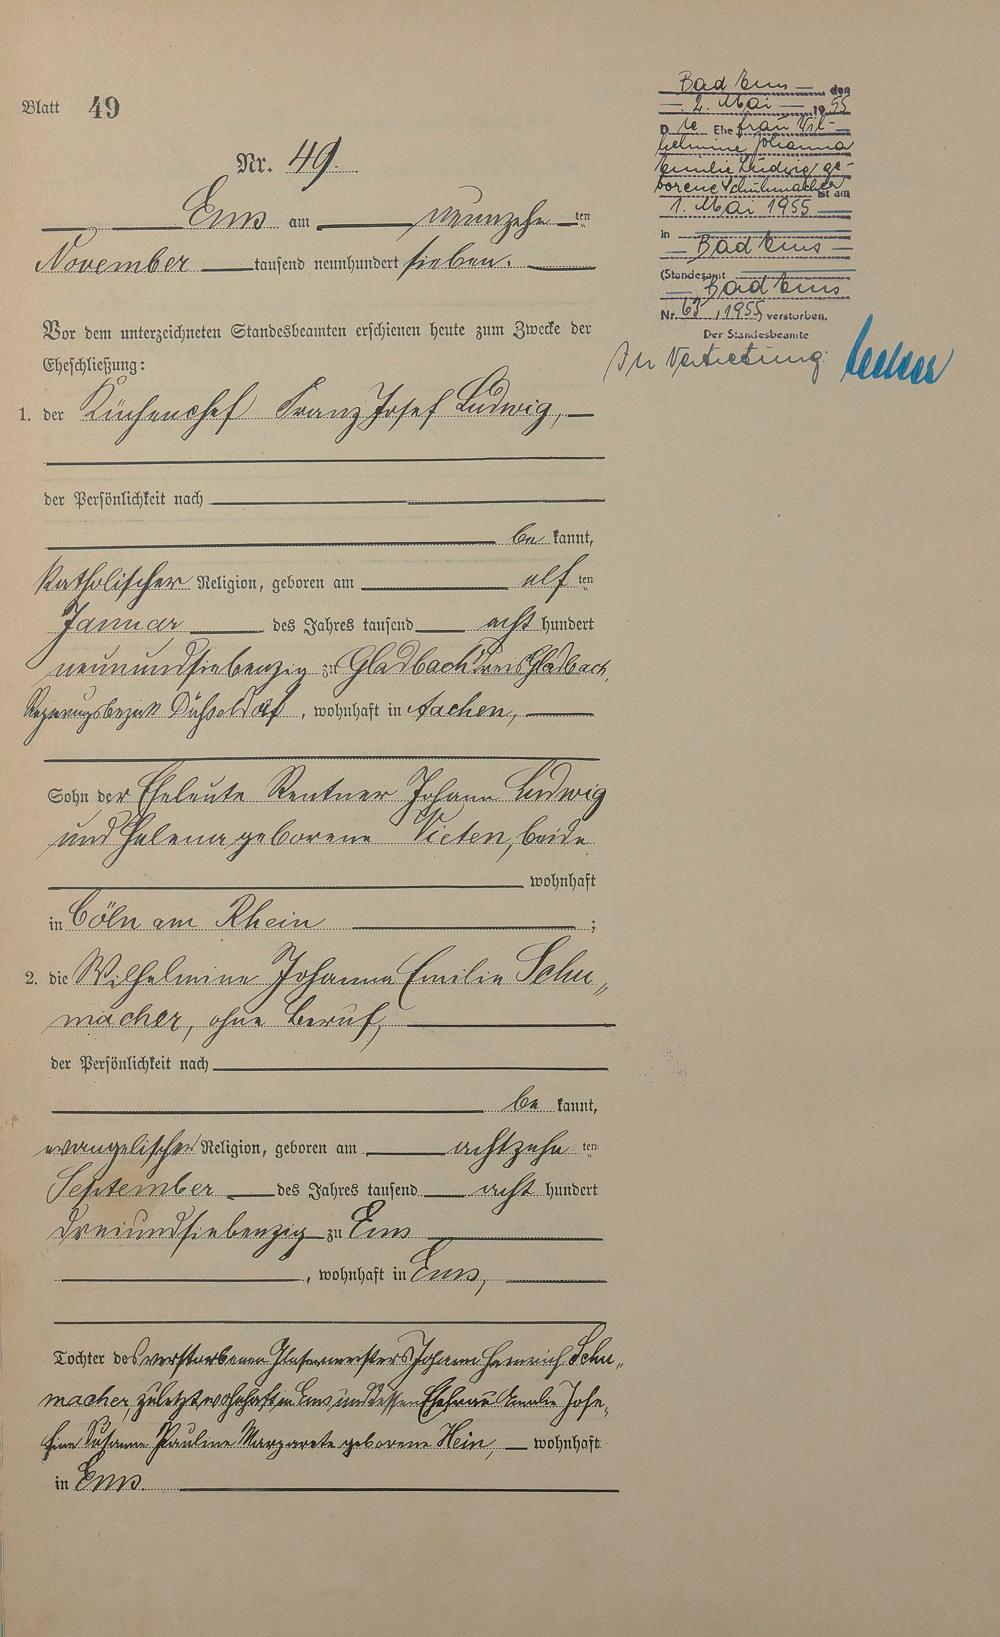 Blatt 49
Nr. 49.
Ems am neunzehnten
November tausend neunhundert sieben.
Vor dem unterzeichneten Standesbeamten erschienen heute zum Zwecke der
Eheschließung:
1. der Küchenchef Franz Josef Ludwig,
der Persönlichkeit nach
bekannt,
katholischer Religion, geboren am elften
Januar des Jahres tausend acht hundert
neunundsiebenzig zu Gladbach Kreis Gladbach,
Regierungsbezirk Düsseldorf, wohnhaft in Aachen,
Sohn der Eheleute Rentner Johann Ludwig
und Helena geborene Vieten, beide
wohnhaft
in Cöln am Rhein ;
2. die Wilhelmine Johanna Emilie Schu„
macher, ohne Beruf,
der Persönlichkeit nach
bekannt,
evangelischer Religion, geboren am achtzehnten
September des Jahres tausend acht hundert
dreiundsiebenzig zu Ems
, wohnhaft in Ems,
Tochter des verstorbenen Glasermeisters Johann Heinrich Schu„
macher, zuletzt wohnhaft in Ems und dessen Ehefrau Amalie Jose„
fine Susanna Pauline Margarete geborene Hein, wohnhaft
in Ems.
Bad Ems den
2. Mai 1955
Die Ehefrau Wil-
helmine Johanna
Emilie Ludwig ge-
borene Schuhmacher ist am
1. Mai 1955
in
Bad Ems
(Standesamt
Bad Ems
Nr. 63, 1955 verstorben.
Der Standesbeamte
In Vertretung: